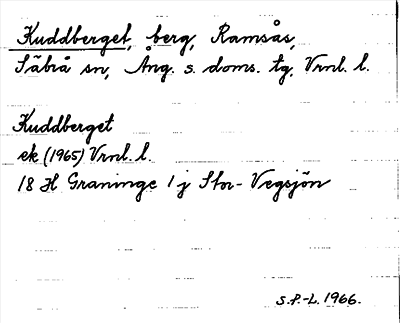 Kuddberget, berg, Ramsås,
Säbrå sn, Ång. s. doms. tg, Vrnl. l.
Kuddberget
ek (1965) Vrnl. l.
18 H Graninge 1 j Stor-Vegsjön
S.P.-L. 1966.